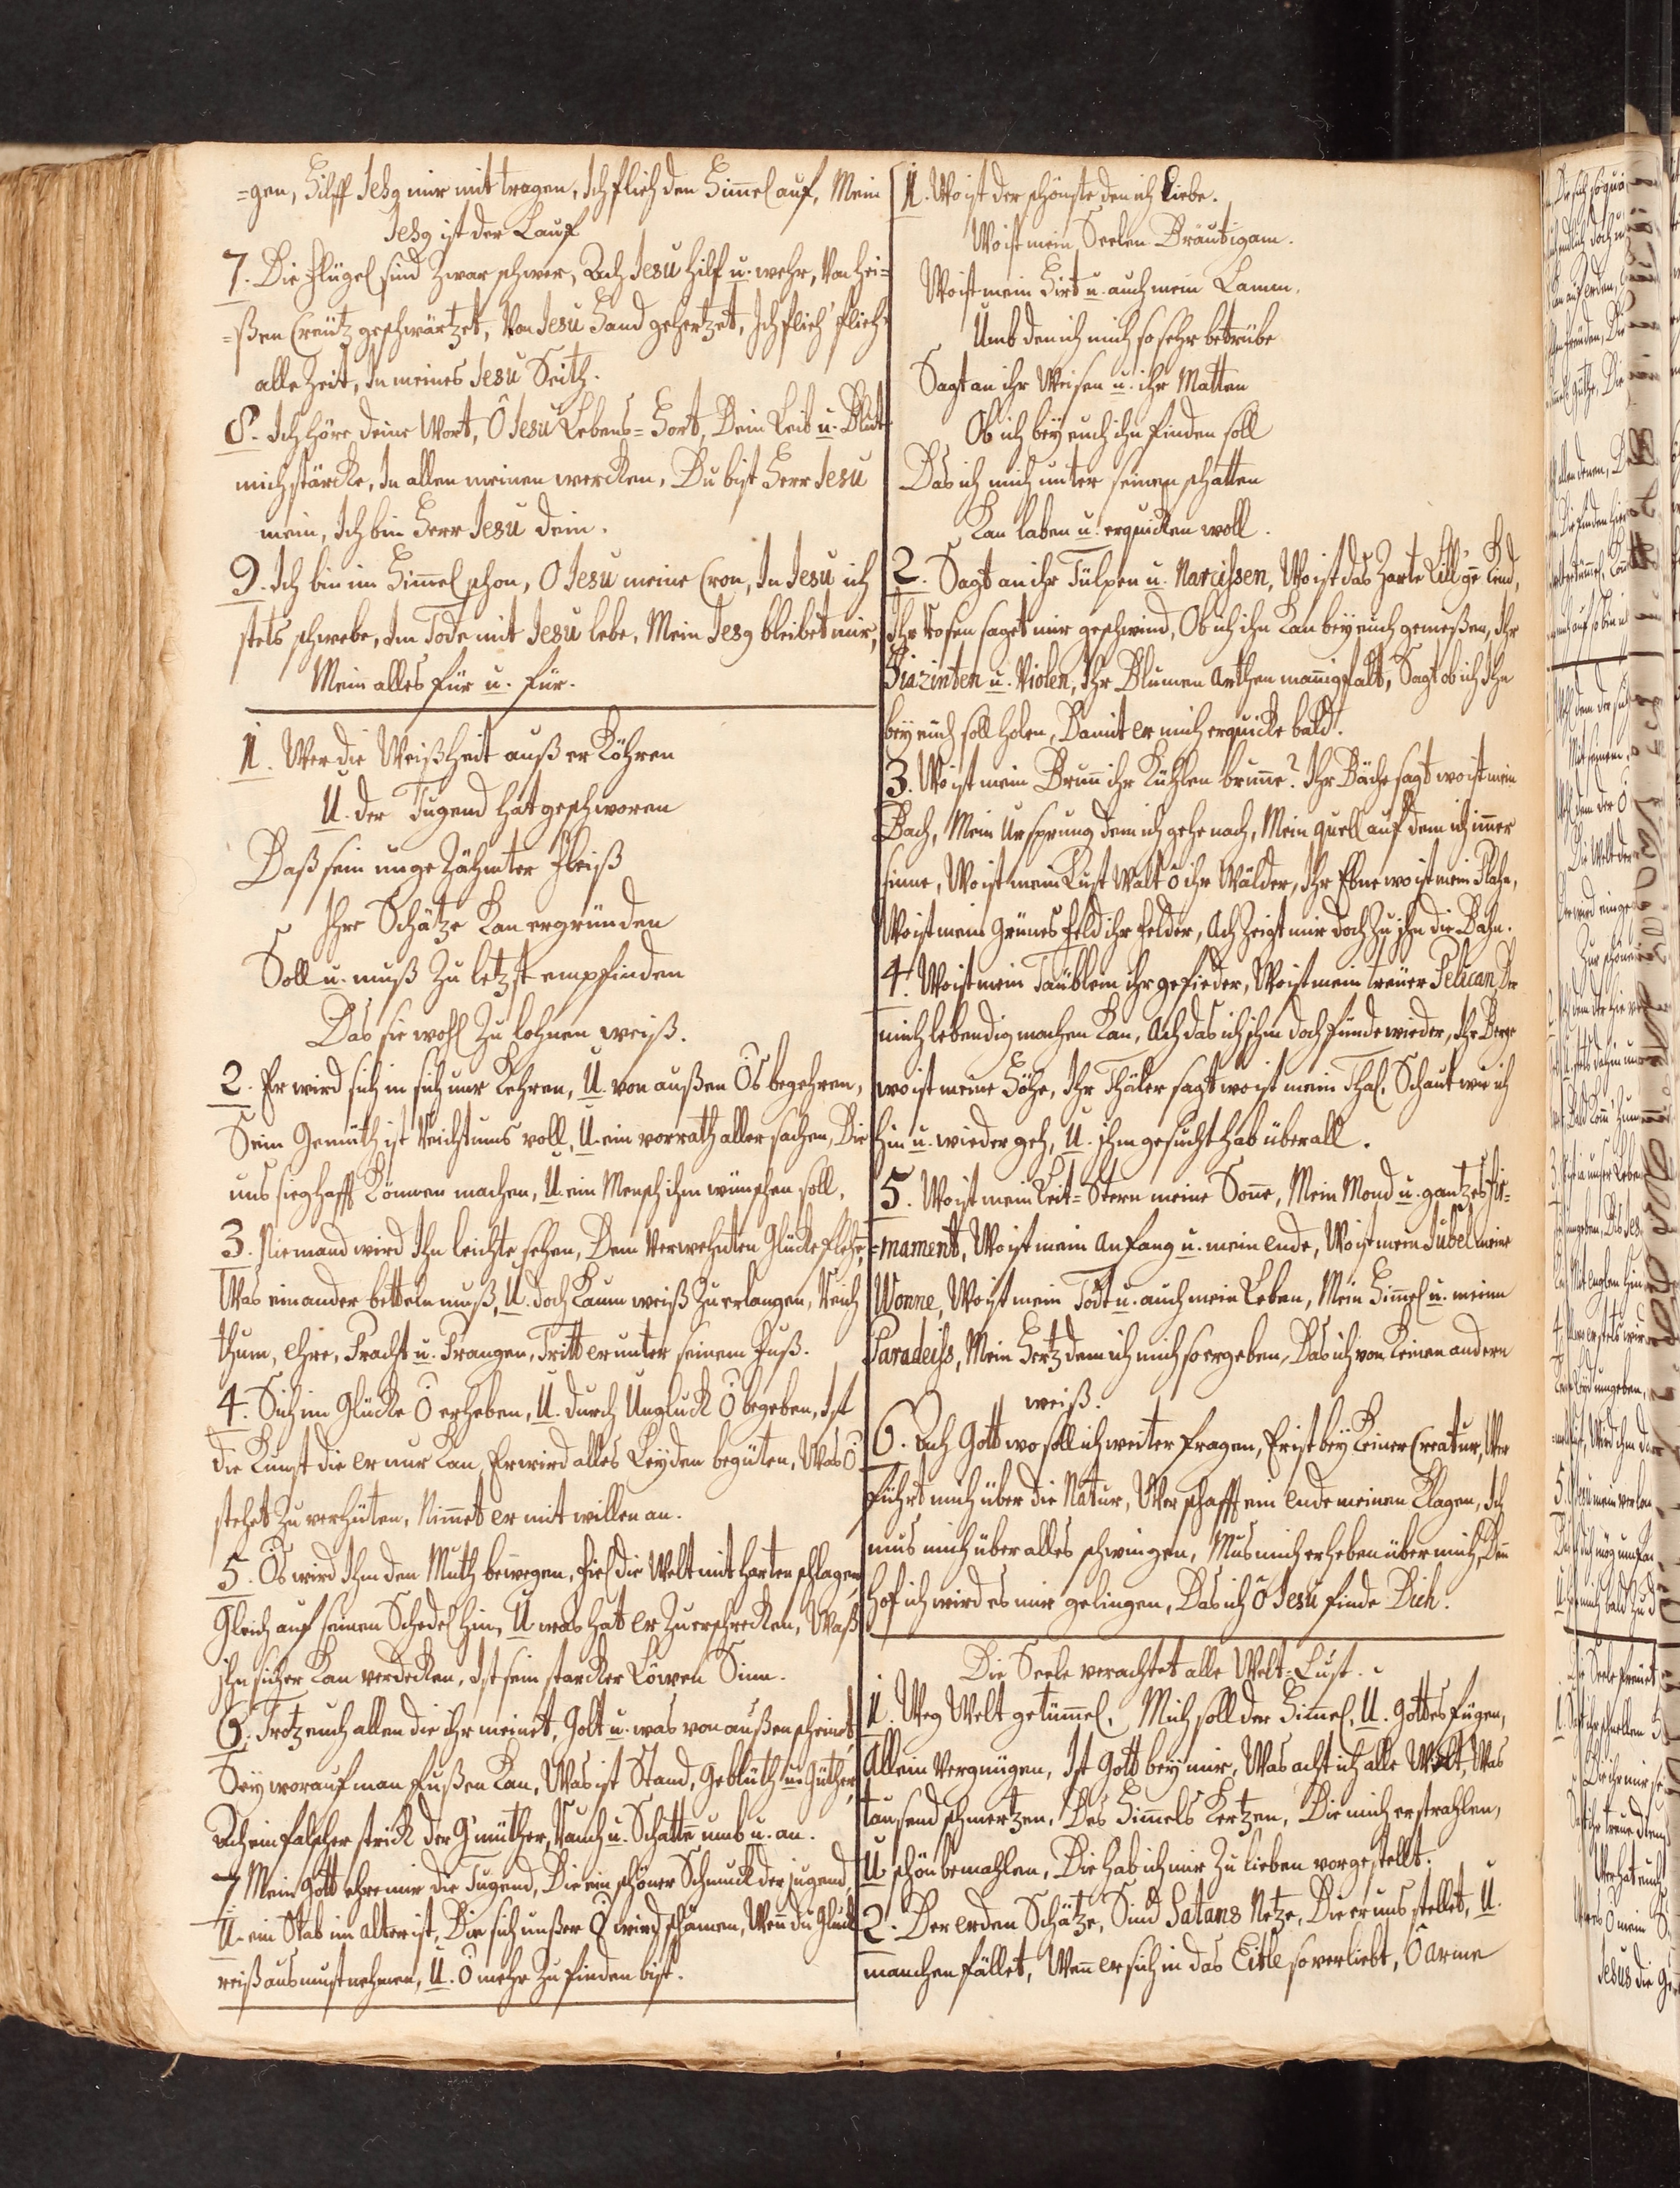 =gen, Hilff Jesg mir mit tragen, Ich flieh den Him̄el auf, Mein
Jesg ist der Lauf
7. Die Flügel sind zwar schwer, Ach Jesu hilf u. wehr, Von hei=
=ßen Creütz geschwärtzet, Von Jesu Hand gehertzet, Ich flieh' flieh'
alle Zeit, In meines Jesu Seith.
8. Ich höre deine Wort, Ô Jesu Lebens=Hort, Dein Leib u. Blut
mich stärcke, In allen meinen wercken, Du bist Herr Jesu
mein, Ich bin Herr Jesu dein.
9. Ich bin im Him̄el schon, O Jesu meine Cron, In Jesu ich
stets schwebe, Im Tode mit Jesu lebe, Mein Jesg bleibet mir,
Mein alles für u. für.
1. Wer die Weißheit außerköhren
U. der Tugend hat geschworen
Daß sein ungezähmter Fleiß
Ihre Schätze kan ergründen
Soll u. muß zu letzt empfinden
Das sie wohl zu lohnen weiß.
2. Er wird sich in sich nur kehren, U. von außen Ös begehren,
Sein Gemüth ist Reichtums voll, U. ein vorrath aller sachen, Die
uns sieghafft können machen, U. ein Mensch ihm wünschen soll.
3. Niemand wird Ihn leichte sehen, Dem Verwehnten Glücke flehn,
Was ein ander betteln muß, U. doch kaum weiß zu erlangen, Reich
thum, Ehre, Pracht u. Prangen, Tritt er unter seinem Fuß.
4. Sich im Glücke Ö erheben, U. durch Ungluck Ö begeben, Ist
die Kunst die er nur kan, Er wird alles Leyden begüten, Was Ö
stehet zu verhüten, Nim̄et er mit willen an.
5. Ös wird Ihm den Muth bewegen, Fiel die Welt mit harten schlägen
Gleich auf seinen Schedel hin, U. was hat er zu erschrecken, Waß
ihn sicher kan verdecken, Ist sein starcker Löwen Sinn.
6. Trotz euch allen die ihr meinet, Golt u. was von außen scheinet,
Sey worauf man fußen kan, Was ist Stand, Geblüth u. Güther,
Ach ein falscher strick der G'müther, Rauch u. Schatte umb u. an.
7 Mein Gott ehre mir die Tugend, Die ein schöner Schmuck der jugend,
U. ein Stab im alter ist, Die sich unßer Ö wird schämen, Wen̄ du Glück
reiß aus must nehmen, U. Ö mehr zu finden bist.
1. Wo ist der schönste den ich Liebe.
Wo ist mein Seelen Bräutigam.
Wo ist mein Hirt u. auch mein Lamm.
Umb den ich mich so sehr betrübe
Sagt an ihr Weisen u. ihr Matten
Ob ich bey euch ihn finden soll
Das ich mich unter seinem schatten
Kan laben u. erquicken woll.
2. Sagt an ihr Tülpen u. Narcissen, Wo ist das zarte Lilgē Kind,
Ihr Rosen saget mir geschwind, Ob ich ihn kan bey euch genießen, Ihr
Hiazinten u. Violen, Ihr Blumen Arthen man̄igfalt, Sagt ob ich Ihn
bey euch soll holen, Damit er mich erquicke bald.
3. Wo ist mein Brun̄ ihr kühlen brunne? Ihr Bäche sagt wo ist mein
Bach, Mein Ursprung dem ich gehe nach, Mein quell auf dem ich im̄er
sinne, Wo ist mein Lust Walt ô ihr Wälder, Ihr Ebne wo ist mein Plahn,
Wo ist mein Grünes feld ihr felder, Ach zeigt mir doch zu ihm die Bahn.
4. Wo ist mein Täublein ihr gefieder, Wo ist mein treüer Pelican, Der
mich lebendig machen kan, Ach das ich ihm doch fünde wieder, Ihr Berge
wo ist meine Höhe, Ihr Thäler sagt wo ist mein Thal, Schaut wie ich
hin u. wieder geh, U. ihm gesucht hab überall.
5. Wo ist mein Leit=Stern meine Son̄e, Mein Mond u. gantzes Fir=
=mament, Wo ist mein anfang u. mein ende, Wo ist mein Jubel meine
Wonne, Wo ist mein Tôdt u. auch mein Leben, Mein Him̄el u. meinn
Paradeiss, Mein Hertz dem ich mich so ergeben, Das ich von keinen andern
weiß.
6. Ach Gott wo soll ich weiter fragen, Er ist bey keiner Creatur, Wer
führt mich über die Natur, Wer schafft ein ende meinen klagen, Ich
mus mich über alles schwingen, Mus mich erheben über mich, Den̄
hof ich wird es mir gelingen, Das ich Ô Jesu finde Dich.
Die Seele verachtet alle Welt=Lust.
1. Weg Welt getüm̄el, Mich soll der Him̄el, U. Gottes fügen,
Allein Vergnügen, Ist Gott bey mir, Was acht ich alle Welt, Was
tausend schmertzen, Des Him̄els Kertzen, Die mich erstrahlen,
U. schön bemahlen, Die hab ich mir zu lieben vorgestellt.
2. Der erden Schätze, Sind Satans Netze, Die er uns stellet, U.
manchen fället, Wen̄ er sich in das Eitle so verliebt, Ô arme